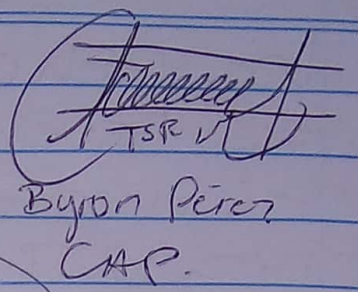 TSR V
Byron Pérez
CAP.